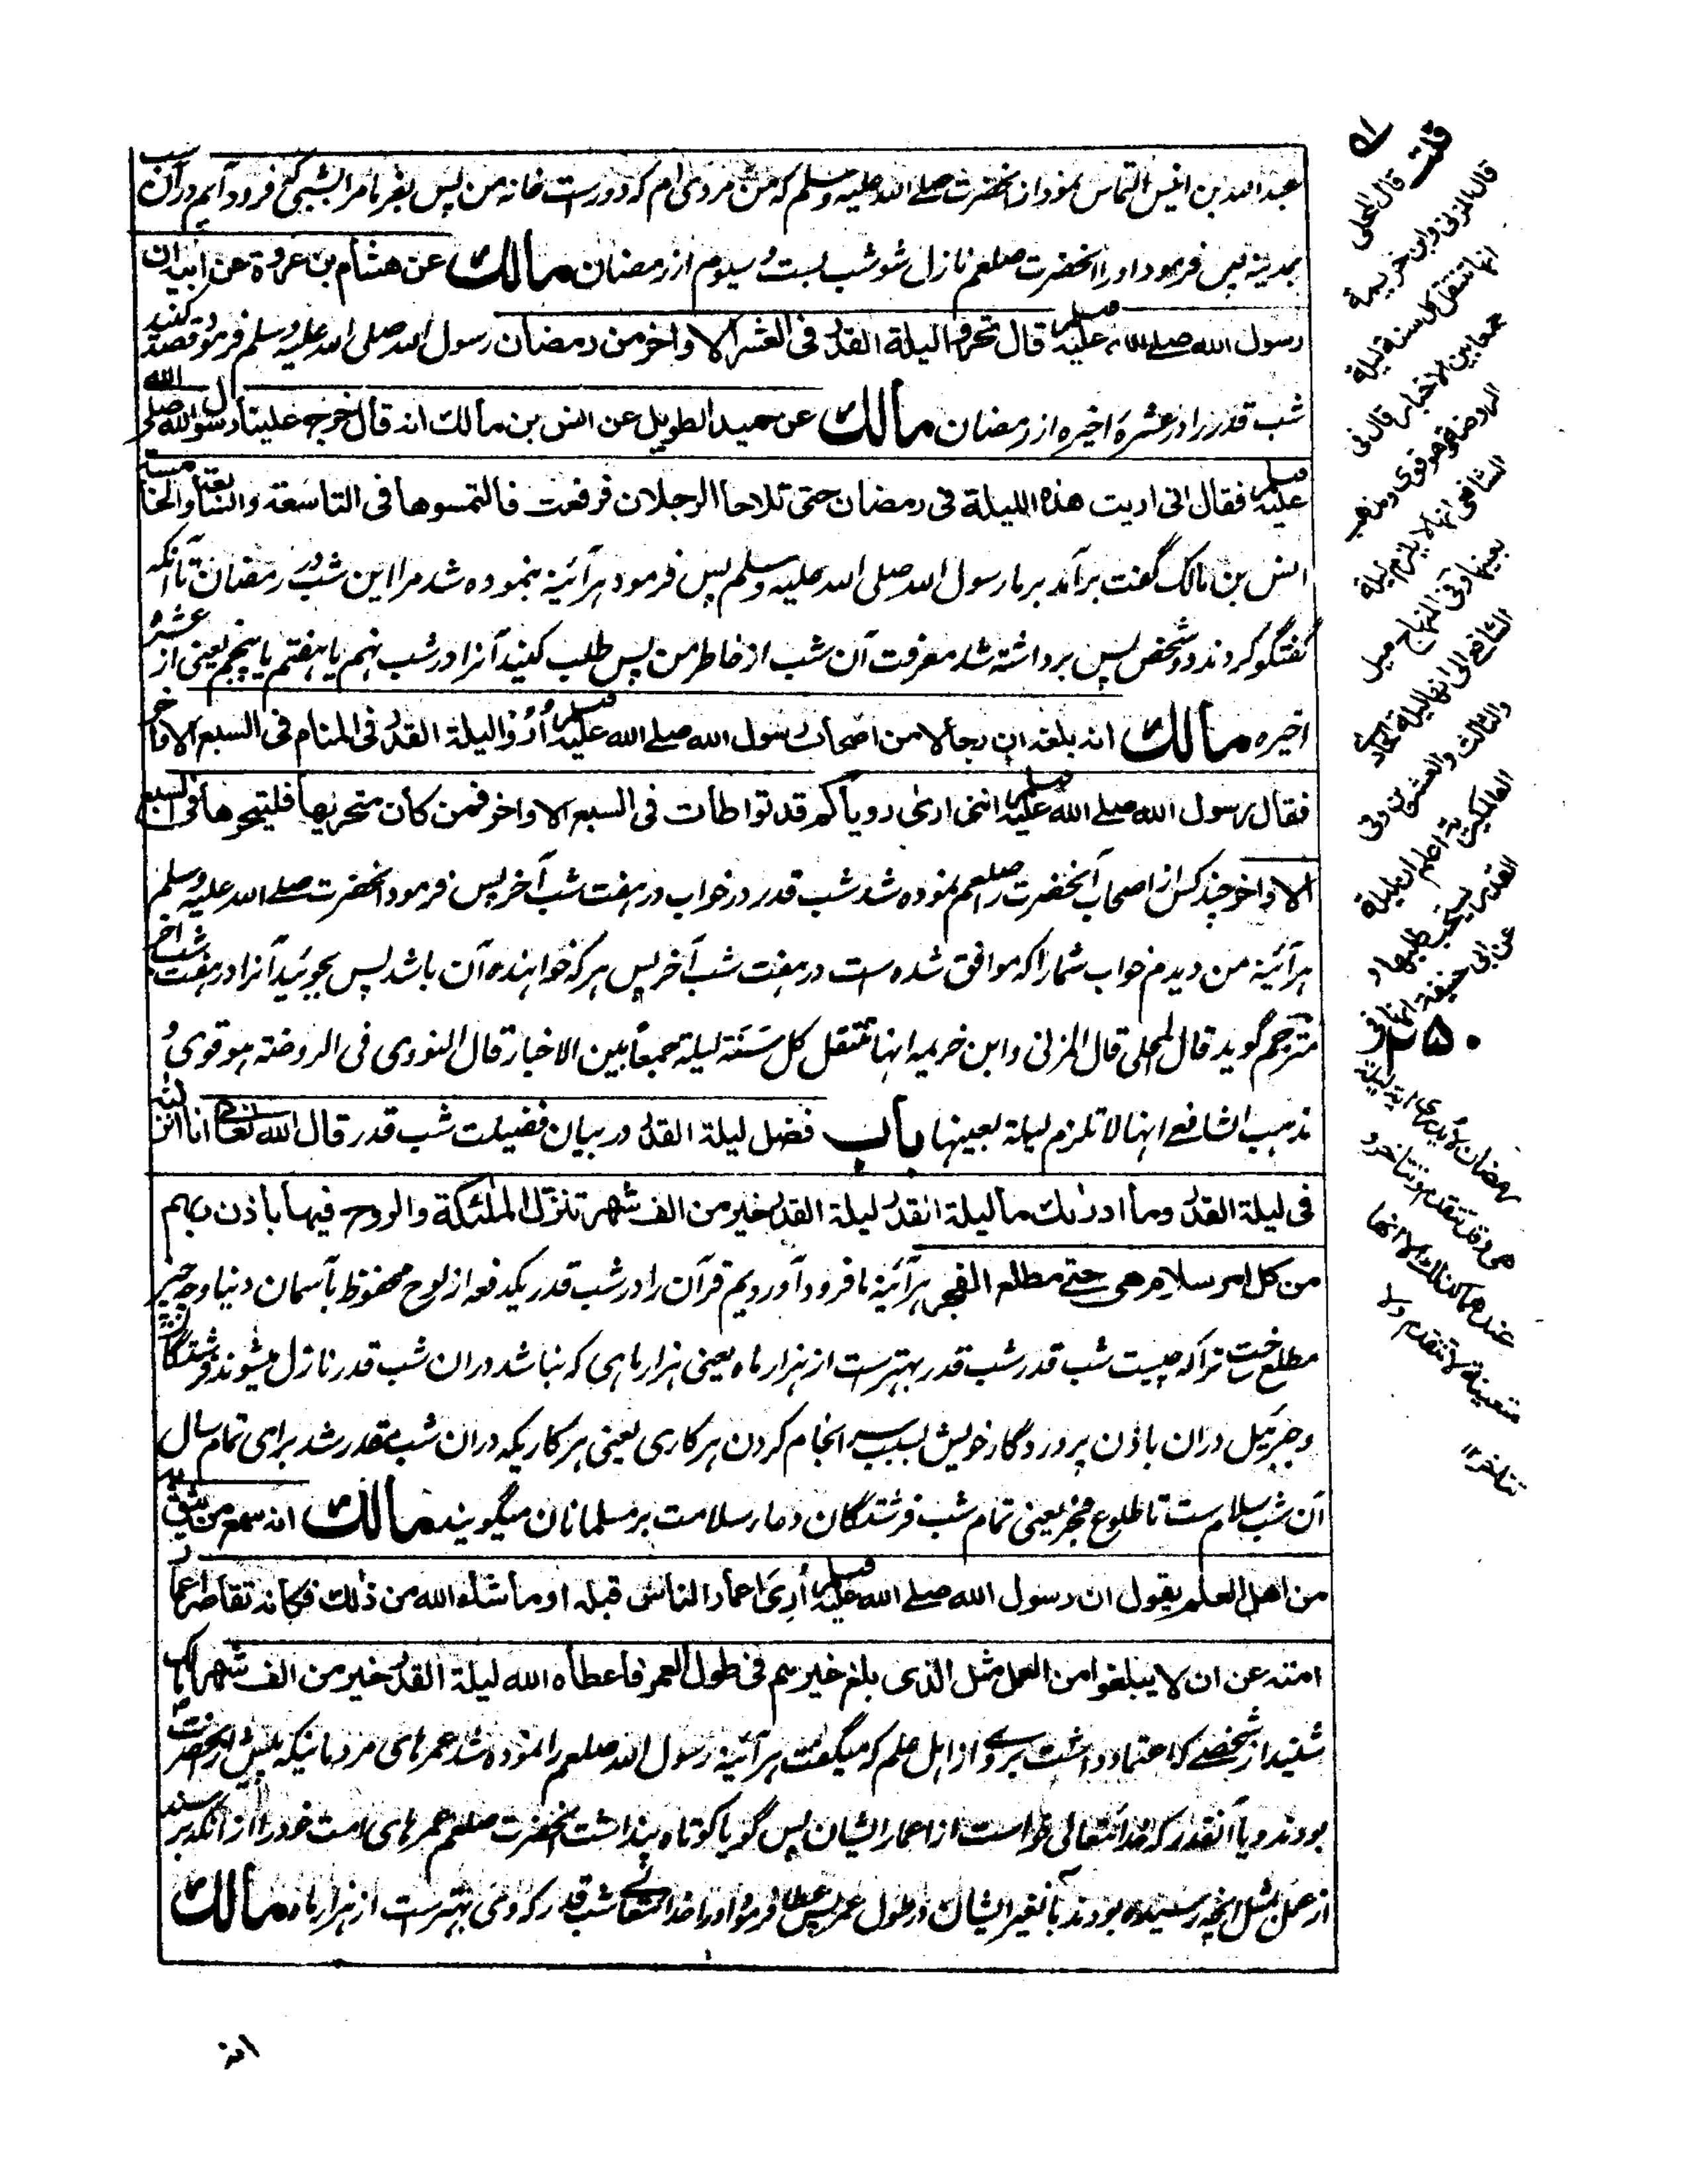 عبدالله بن انیس التماس نمود از آنحضرت صلے الله علیه وسلم که من مردی ام که دورست خانه من پس بفرما مرا بشبی که فرود آیم درآن شب
بمدینه پس فرمود اورا آنحضرت صلعم نازل شو شب بست و سیوم از رمضان مالك عن هشام بن عروة عن ابیه ان
رسول الله صلے الله علیه وسلم قال تحروا لیلة القدر فی العشر الاواخر من رمضان رسول الله صلی الله علیه وسلم فرمود قصد کنید
شب قدر را در عشرهٔ اخیره از رمضان مالك عن حمید الطویل عن انس بن مالك انه قال خرج علینا رسول الله صلی الله
علیه وسلم فقال انی اریت هذه اللیلة فی رمضان حتی تلاحا الرجلان فرفعت فالتمسوها فی التاسعة والسابعة والخامسة
انس بن مالک گفت برآمد بر ما رسول الله صلی الله علیه وسلم پس فرمود هرآئینه نموده شد مرا این شب در رمضان تا آنکه
گفتگو کردند دو شخص پس برداشته شد معرفت آن شب از خاطر من پس طلب کنید آنرا در شب نهم یا هفتم یا پنجم یعنی از عشرهٔ
اخیره مالك انه بلغه ان رجالا من اصحاب رسول الله صلے الله علیه وسلم أُرُوا لیلة القدر فی المنام فی السبع الاواخر
فقال رسول الله صلے الله علیه وسلم اننی اری رویاکم قد تواطأت فی السبع الاواخر فمن کان متحریها فلیتحرها فی السبع
الاواخر چند کس از اصحاب آنحضرت صلعم نموده شد شب قدر در خواب در هفت شب آخر پس فرمود آنحضرت صلے الله علیه وسلم
هرآئینه من دیدم خواب شما را که موافق شده ست در هفت شب آخر پس هر که خواهنده آن باشد پس بجوئید آنرا در هفت شب آخر
مترجم گوید قال المحلی قال المزنی وابن خزیمه انها تنتقل کل سَنَة لیلة جمعاً بین الاخبار قال النووی فی الروضته هو قوی و
مذهب الشافعے انها لا تلزم لیلة بعینها باب فضل لیلة القدر در بیان فضیلت شب قدر قال الله تعالی انا انزلنه
فی لیلة القدر وما ادرٰىك ما لیلة القدر لیلة القدر خیر من الف شهر تنزل الملئكة والروح فیها باذن ربهم
من کل امر سلام هی حتے مطلع الفجر هرآئینه ما فرود آوردیم قرآن را در شب قدر یکدفعه از لوح محفوظ بآسمان دنیا و چه چیز
مطلع ساخت ترا که چیست شب قدر شب قدر بهترست از هزار ماه یعنی هزار ماهی که نباشد دران شب قدر نازل میشوند فرشتگان
و جبرئیل دران باذن پروردگار خویش بسبب سرانجام کردن هر کاری یعنی هر کاریکه دران شب مقدر شد برای تمام سال
آن شب سلام ست تا طلوع فجر یعنی تمام شب فرشتگان دعاء سلامت بر مسلمانان میگویند مالك انه سمع من یثق به
من اهل العلم یقول ان رسول الله صلے الله علیه وسلم أُرِیَ اعمار الناس قبله او ما شاء الله من ذلك فكانه تقاصر اعمار
امته عن ان لا یبلغوا من العمل مثل الذی بلغ غیرهم فی طول العمر فاعطاه الله لیلة القدر خیر من الف شهر مالک
شنید از شخصے که اعتماد داشت بروے از اهل علم که میگفت هرآئینه رسول الله صلعم را نموده شد عمرهای مردمانیکه پیش از آنحضرت
بودند و یا آنقدر که خدایتعالی خواست از اعمار ایشان پس گویا کوتاه پنداشت آنحضرت صلعم عمرهای امت خود را از آنکه برسند
از عمل بمثل آنچه رسیده بودند بآن غیر ایشان در طول عمر پس عطا فرمود او را خدا تعالے شب قدر که وی بهترست از هزار ماه مالك
انه
قلت قال المحلی
قال المزنی وابن خزیمة
انها تنتقل کل سنة لیلة
جمعا بین الاخبار قال فی
الروضة وهو قوی ومذهب
الشافعی انها لا یلزم لیلة
بعینها وفی المنهاج میل
الشافعی الی انها لیلة الحادی
والثالث والعشرین وفی
العالمگیریة اعلم ان لیلة
القدر یستحب طلبها و
عن ابی حنیفة انها فی
۲۵۰
رمضان لا یدری ایة لیلة
هی وقد تتقدم وتتاخر و
عندهما کذلك الا انها
متعینة لا تتقدم ولا
تتاخر ۱۲